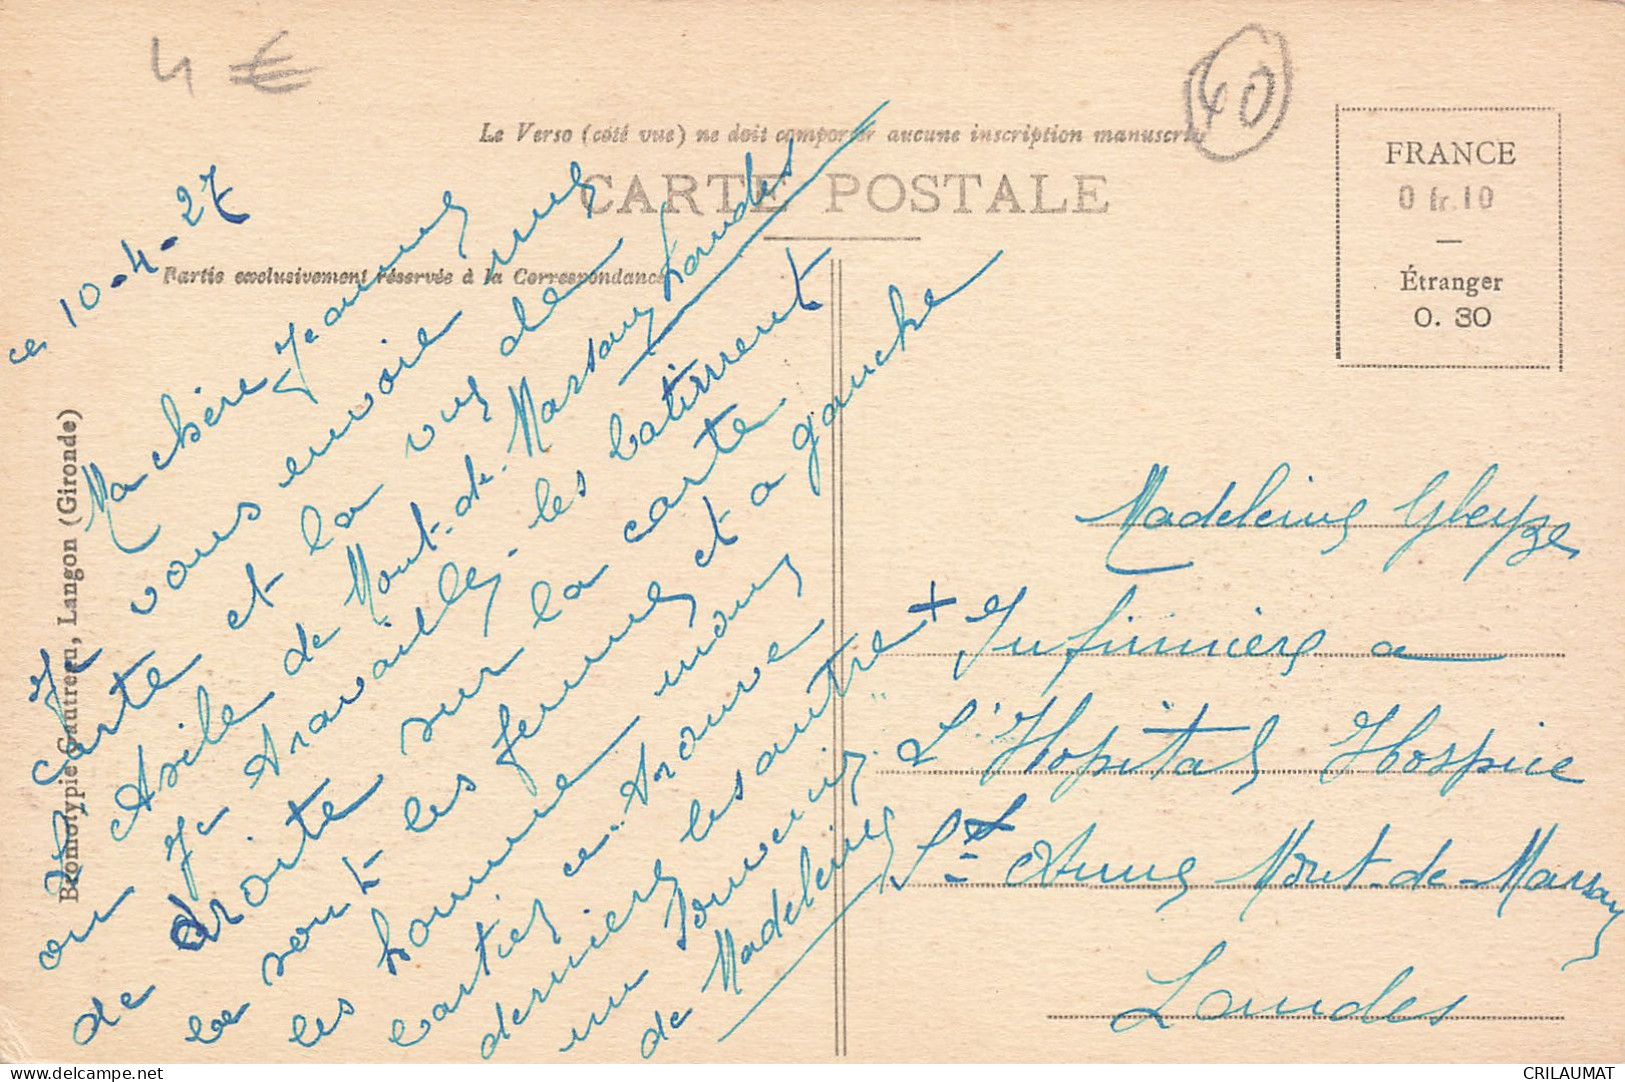 4 €
40
Le Verso (côté vue) ne doit comporter aucune inscription manuscrite
CARTE POSTALE
Partie exclusivement réservée à la Correspondance
FRANCE
0 fr. 10
Étranger
0. 30
Bromotypie Gautreau, Langon (Gironde)
ce 10-4-27
Ma chère Jeanne
Je vous envoie une
Carte et la vue de
L'Asile de Mont-de-Marsan Landes
ou Je travaille, les batiment
de droite sur la carte
ce sont les femmes et a gauche
les homme nous
cartier ce trouve
derniere les autre +
un souvenir
de Madeleine
Madeleine Gleyze
Infirmière a
L'Hopital Hospice
Ste Anne Mont-de-Marsan
Landes
delcampe.net
CRILAUMAT